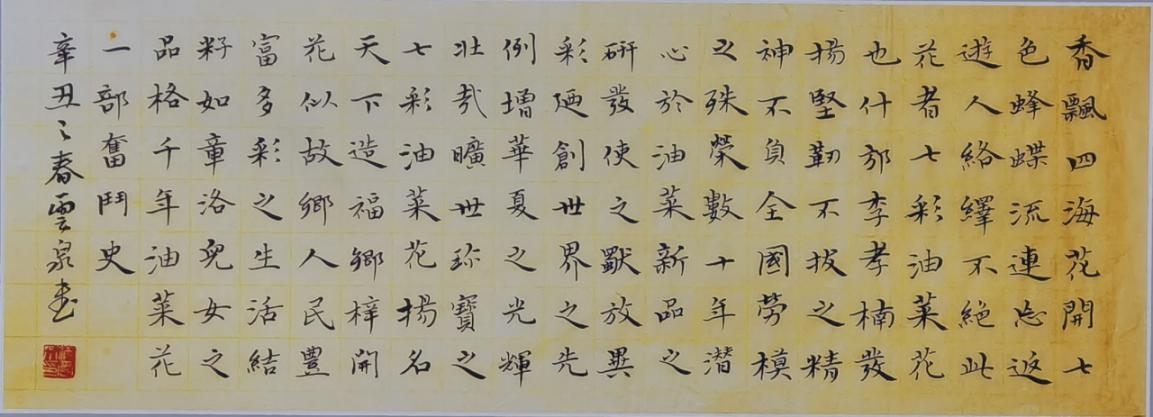 香飄四海花開七
色蜂蝶流連忘返
遊人絡繹不絕此
花者七彩油菜花
也什邡李孝楠發
揚堅韌不拔之精
神不負全國勞模
之殊榮數十年潛
心於油菜新品之
研發使之獸放異
彩迺創世界之先
例增華夏之光輝
壯哉曠世珍寶之
七彩油菜花揚名
天下造福鄉梓開
花似故鄉人民豐
富多彩之生活結
籽如章洛兒女之
品格千年油菜花
一部奮鬥史
辛丑之春雲泉書